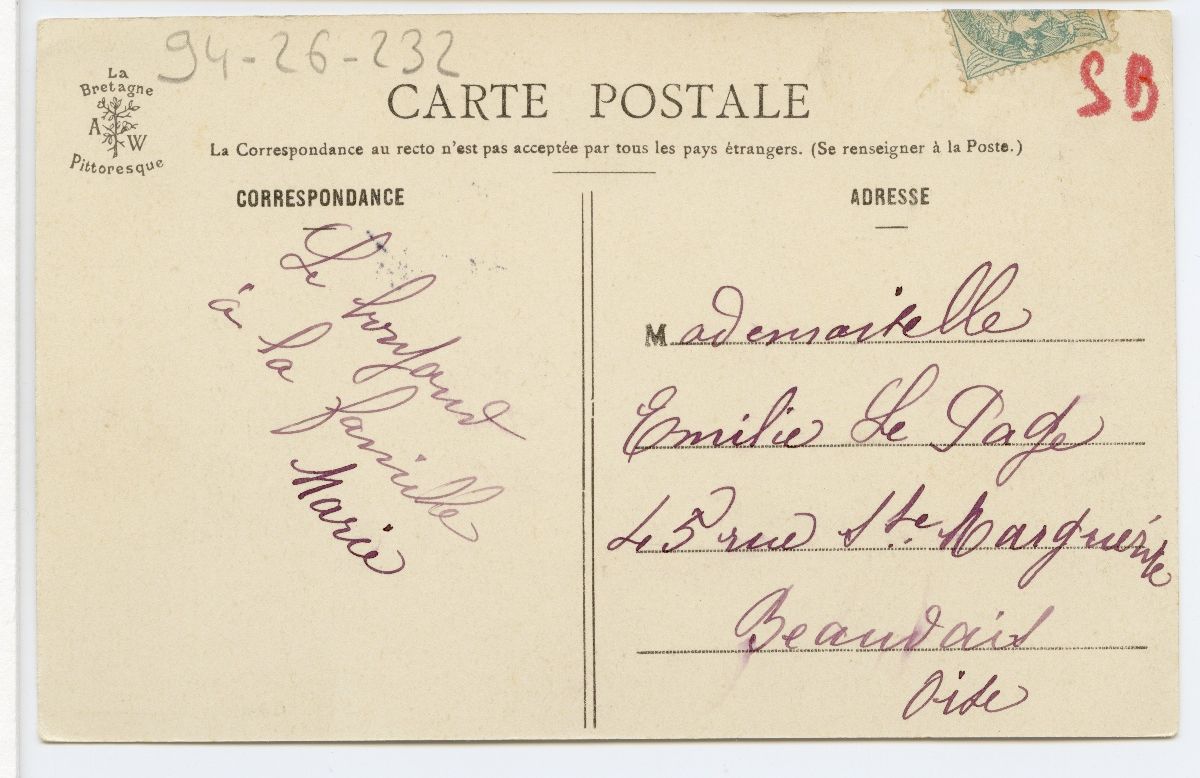 94-26-232
La
Bretagne
A W
Pittoresque
CARTE POSTALE
SB
La Correspondance au recto n'est pas acceptée par tous les pays étrangers. (Se renseigner à la Poste.)
CORRESPONDANCE
Le bonjour
à la famille
Marie
ADRESSE
Mademoiselle
Emilie Le Page
45 rue Ste Marguerite
Beauvais
Oise